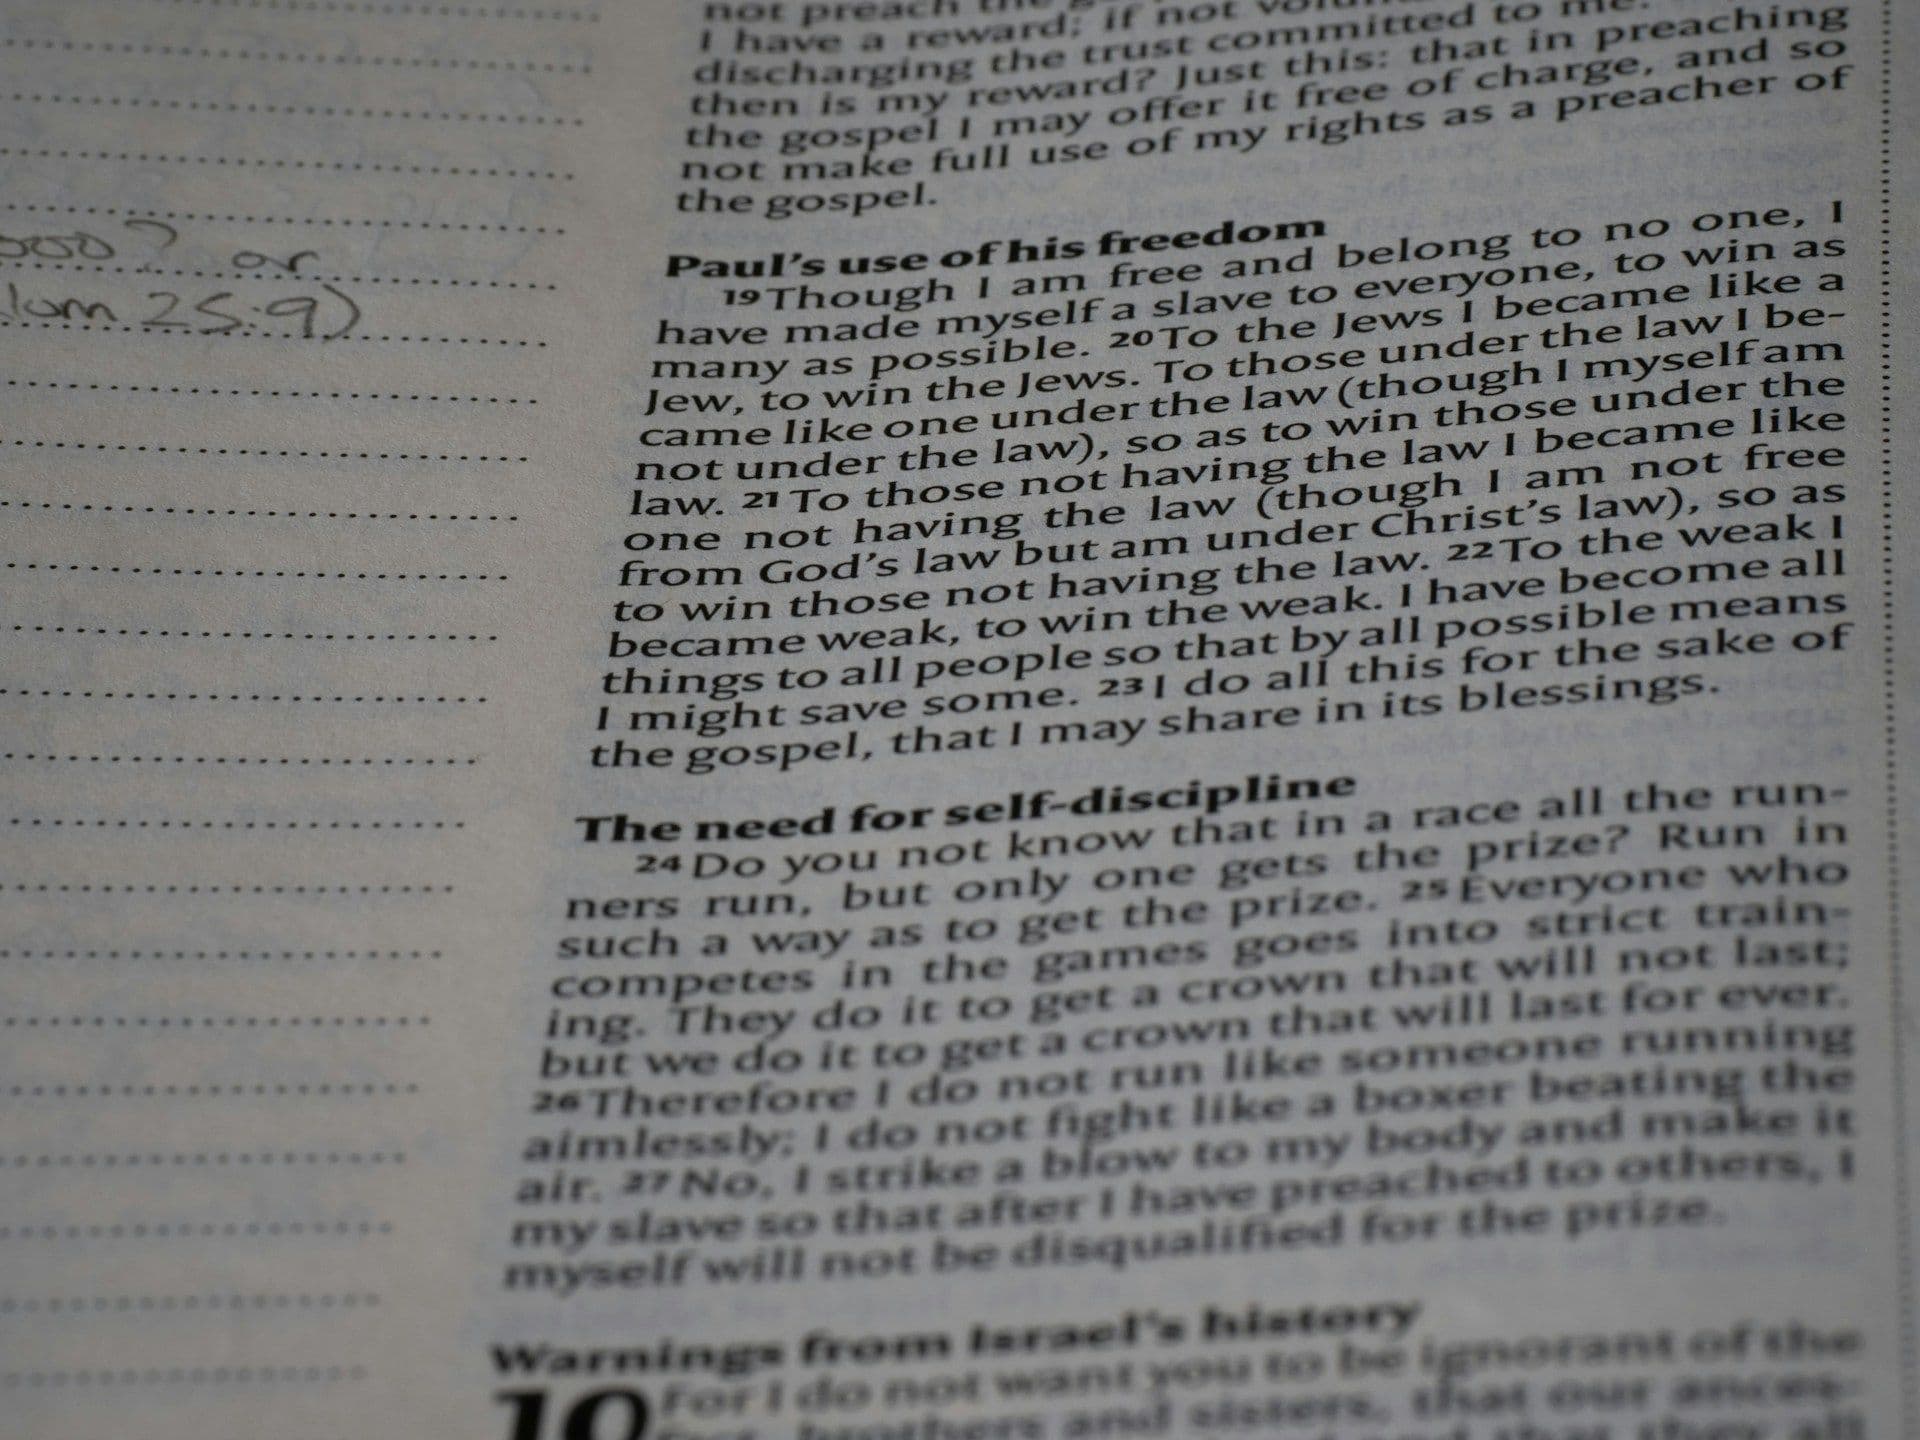 000? or
um 25:9)
not preach the
I have a reward; if not
discharging the trust committed to me.
then is my reward? Just this: that in preaching
the gospel I may offer it free of charge, and so
not make full use of my rights as a preacher of
the gospel.
Paul's use of his freedom
19 Though I am free and belong to no one, I
have made myself a slave to everyone, to win as
many as possible. 20 To the Jews I became like a
Jew, to win the Jews. To those under the law I be-
came like one under the law (though I myself am
not under the law), so as to win those under the
law. 21 To those not having the law I became like
one not having the law (though I am not free
from God's law but am under Christ's law), so as
to win those not having the law. 22 To the weak I
became weak, to win the weak. I have become all
things to all people so that by all possible means
I might save some. 23 I do all this for the sake of
the gospel, that I may share in its blessings.
The need for self-discipline
24 Do you not know that in a race all the run-
ners run, but only one gets the prize? Run in
such a way as to get the prize. 25 Everyone who
competes in the games goes into strict train-
ing. They do it to get a crown that will not last;
but we do it to get a crown that will last for ever.
26 Therefore I do not run like someone running
aimlessly; I do not fight like a boxer beating the
air. 27 No, I strike a blow to my body and make it
my slave so that after I have preached to others, I
myself will not be disqualified for the prize.
Warnings from Israel's history
10 For I do not want you to be ignorant of the
fact, brothers and sisters, that our ances-
that they all